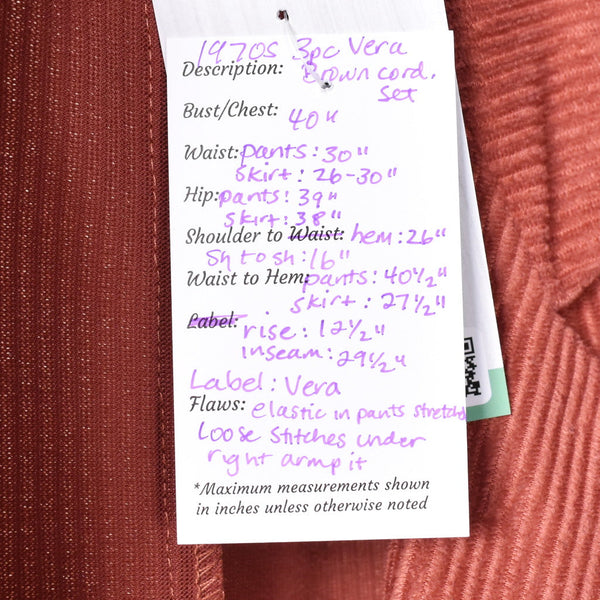 1970s 3pc Vera
Description: Brown cord.
set
Bust/Chest: 40"
Waist: pants: 30"
skirt: 26-30"
Hip: pants: 39"
skirt: 38"
Shoulder to Waist: hem: 26"
sh to sh: 16"
Waist to Hem: pants: 40 1/2"
skirt: 27 1/2"
Label: rise: 12 1/2"
inseam: 29 1/2"
Label: Vera
Flaws: elastic in pants stretched
Loose stitches under
right armpit
*Maximum measurements shown
in inches unless otherwise noted